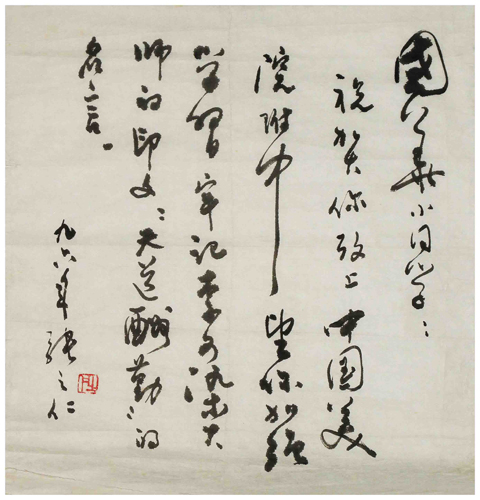 國華小同学：
祝贺你攷上中国美
院附中 望你加强
学習牢记李可染大
师的印文：天道酬勤：的
名言。
九六年 張之仁